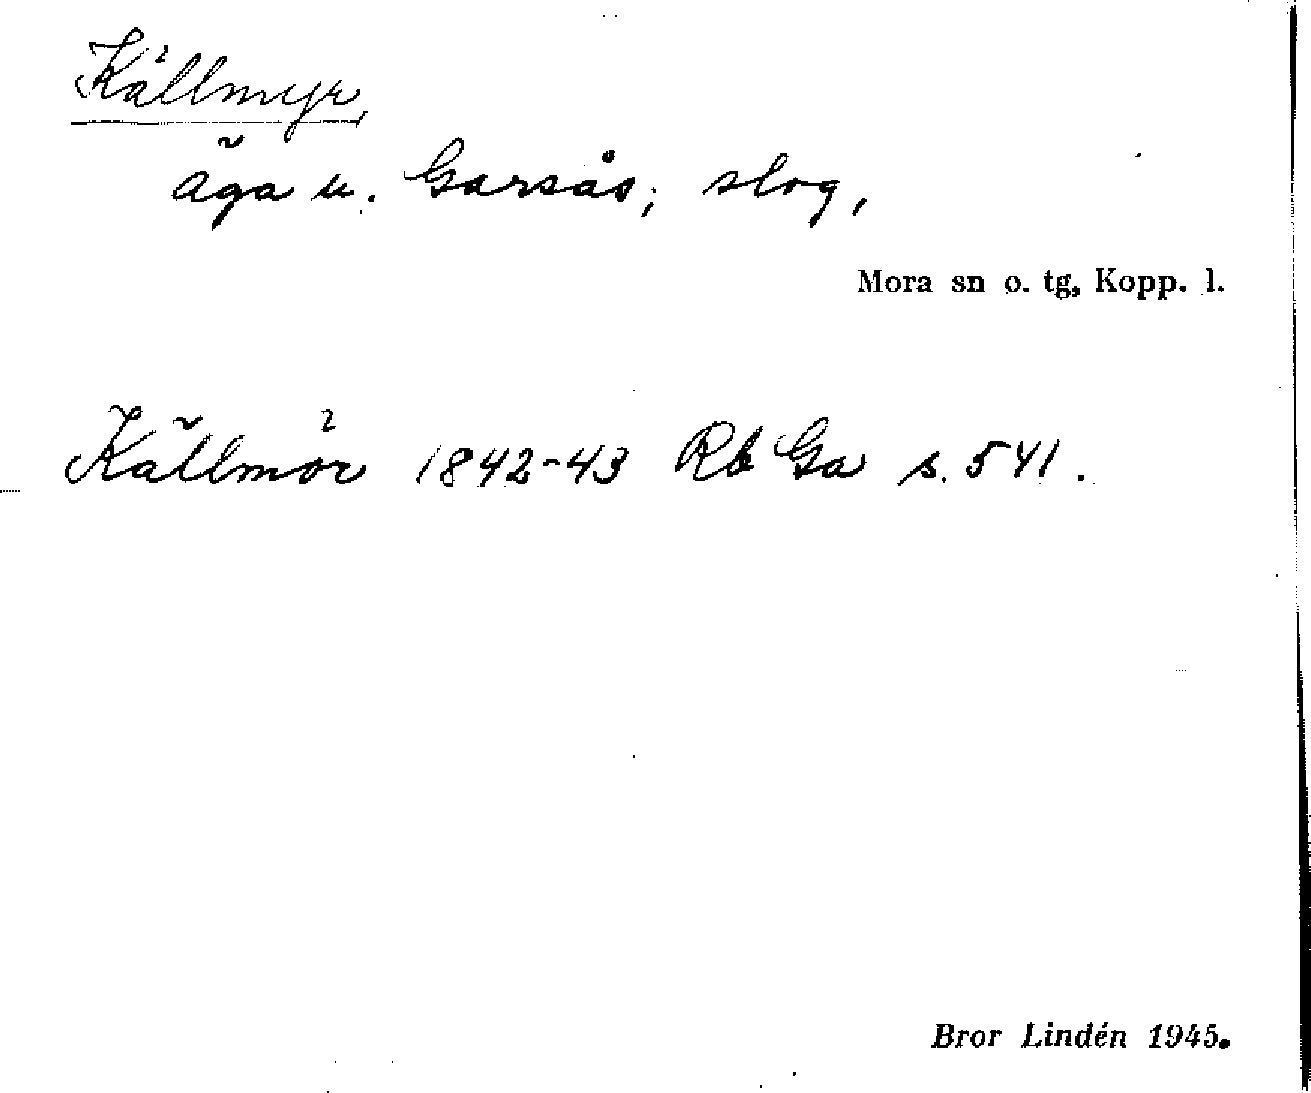 Källmyr,
äga u. Garsås; slog,
Mora sn o. tg, Kopp. l.
Källmör 1842-43 Rb Ga s. 541.
Bror Lindén 1945.